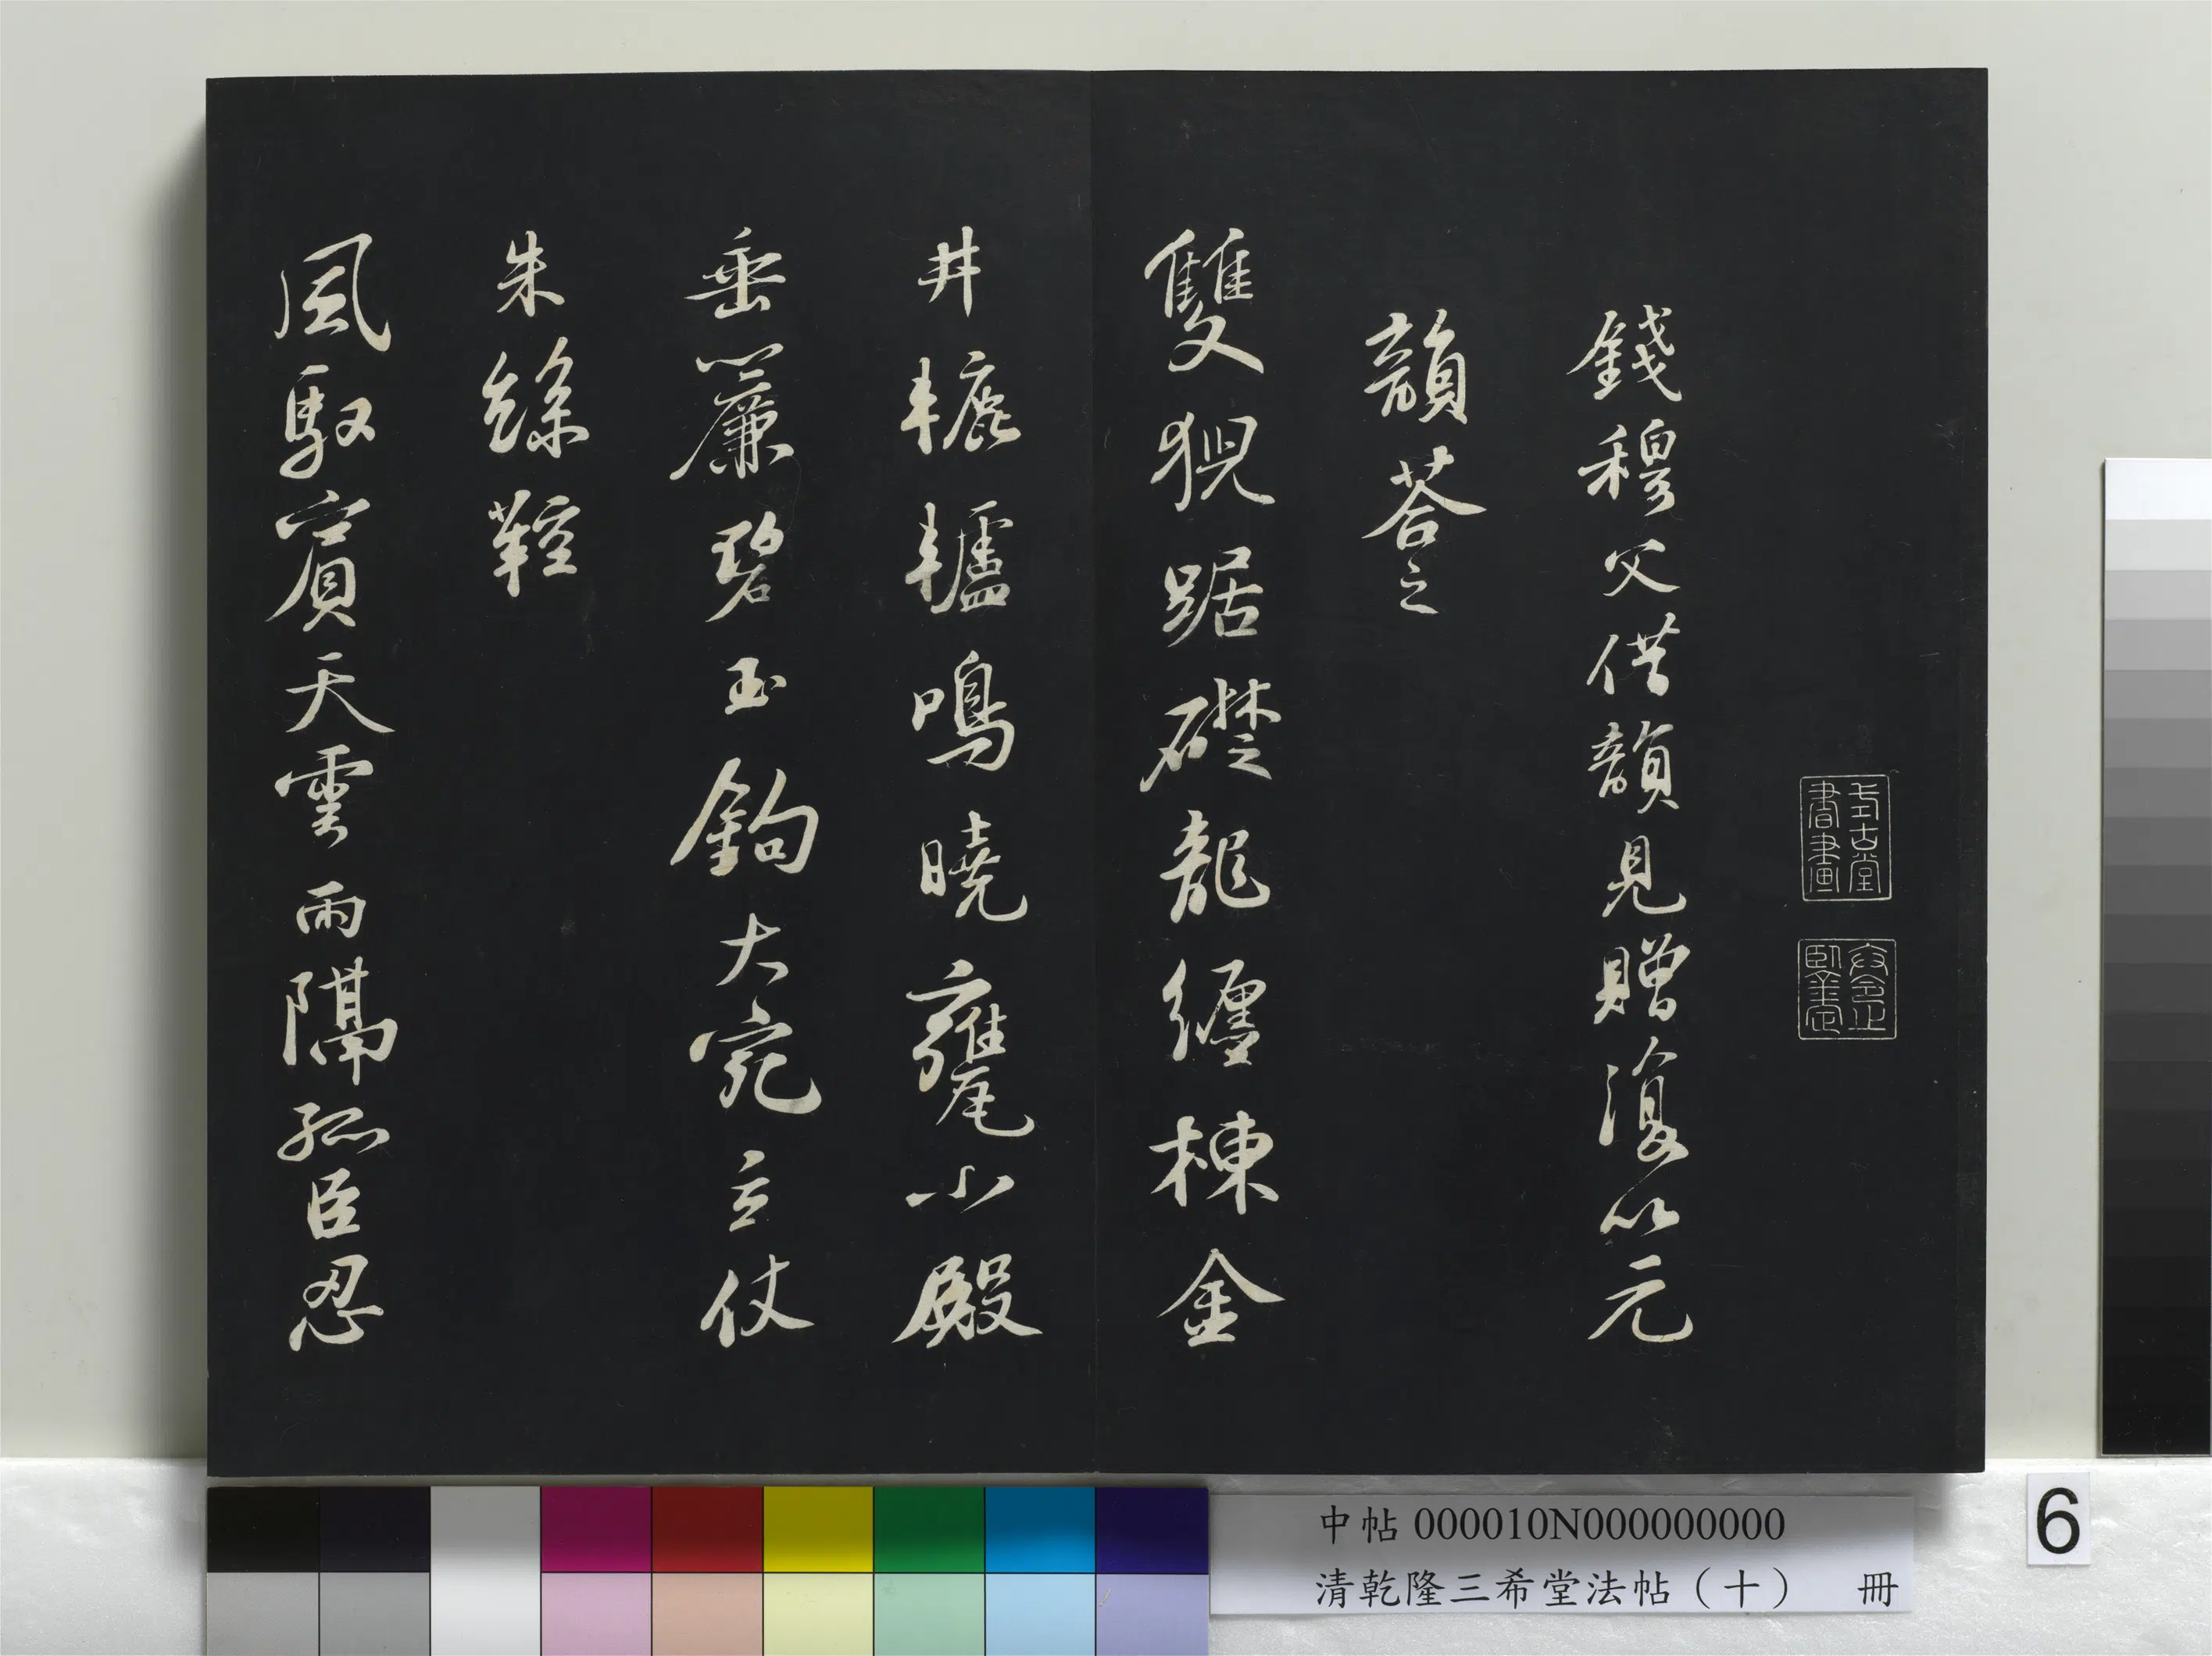 式古堂
書畫
錢穆父借韻見贈復以元
韻荅之
雙猊踞礎龍纏棟金
井轆轤鳴曉甕小殿
垂簾碧玉鉤大宛立仗
朱絲鞚
風馭賓天雲雨隔孤臣忍
中帖 000010N000000000
清乾隆三希堂法帖（十） 冊
6